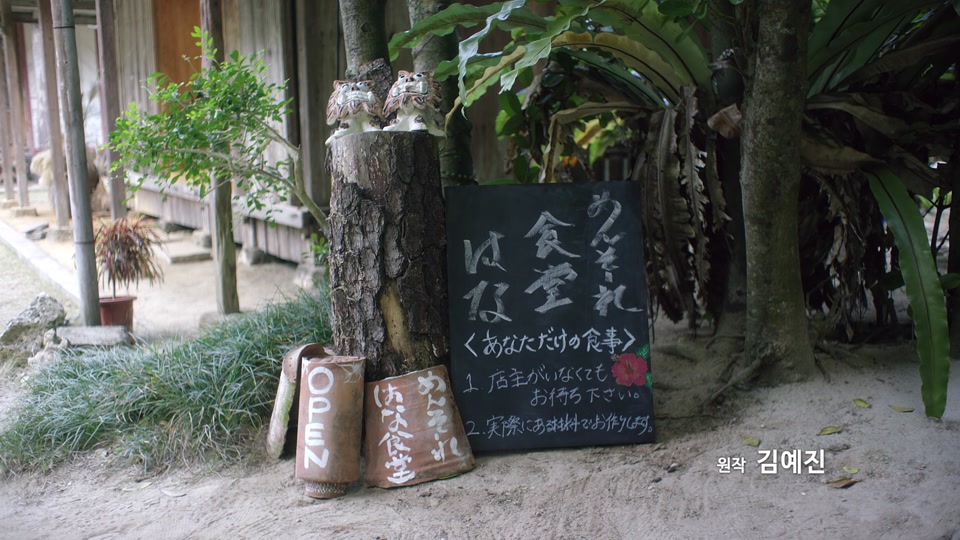 めんそーれ
食堂
はな
<あなただけの食事>
1. 店主がいなくても
お待ち下さい。
2. 実際にある材料でお作りします。
OPEN
めんそーれ
はな食堂
원작 김예진